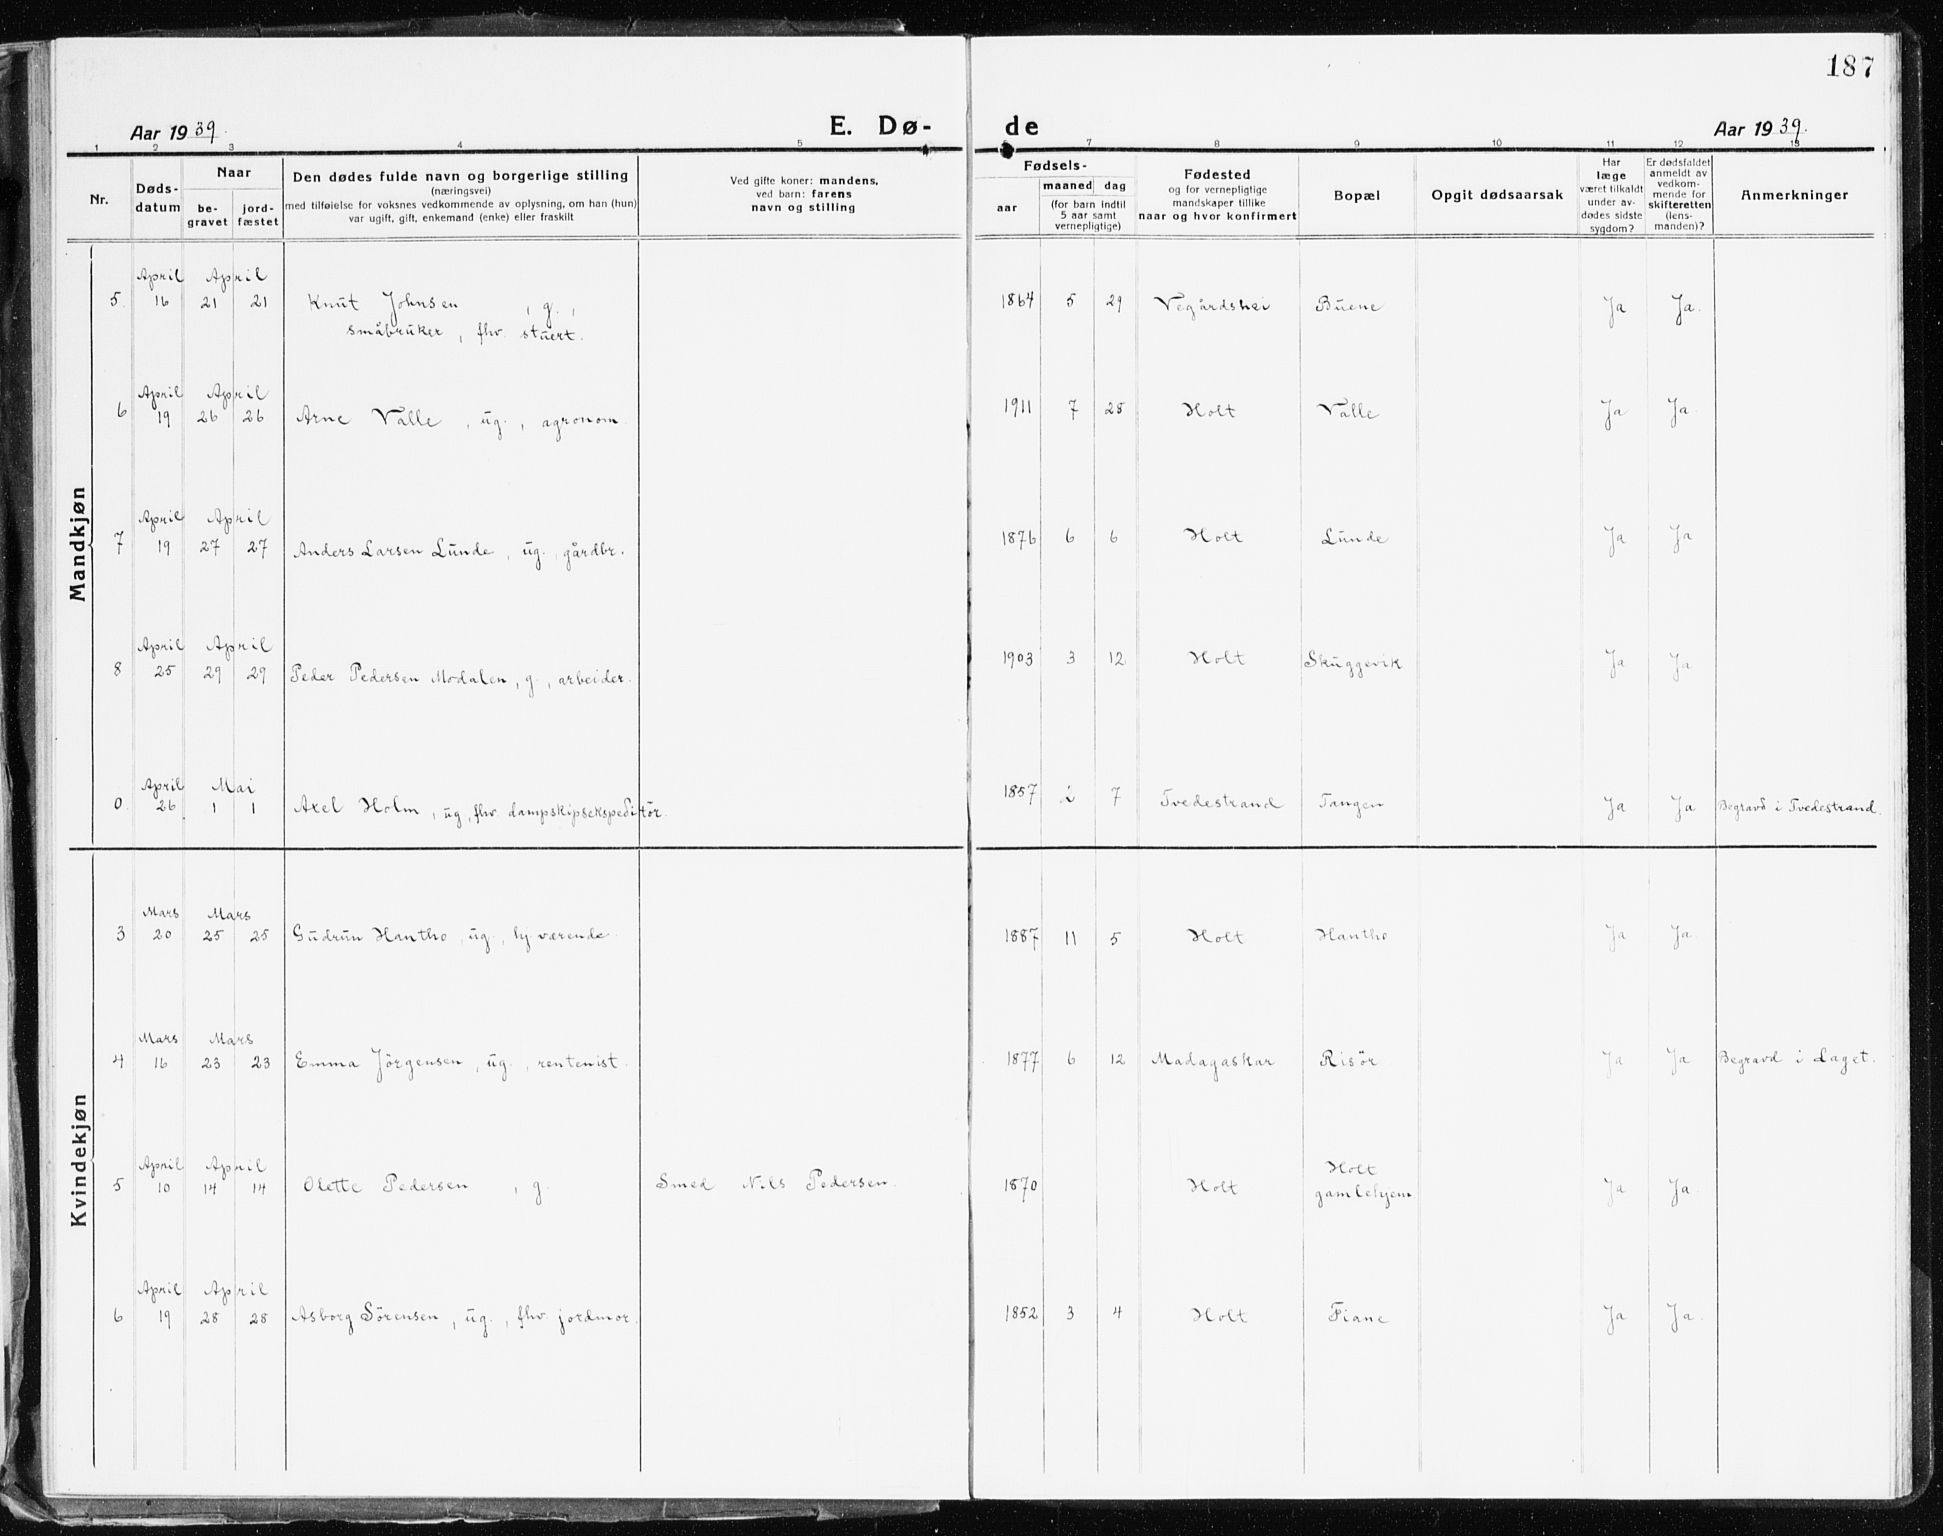 187
Aar 1939.
E. Dø-
de
Aar 1939.
1 2 3 4 5 7 8 9 10 11 12 13
Nr.
Døds-
datum
Naar
be-
gravet
jord-
fæstet
Den dødes fulde navn og borgerlige stilling
(næringsvei)
med tilføielse for voksnes vedkommende av oplysning, om han (hun)
var ugift, gift, enkemand (enke) eller fraskilt
Ved gifte koner: mandens,
ved barn: farens
navn og stilling
Fødsels-
aar
maaned dag
(for barn indtil
5 aar samt
vernepligtige)
Fødested
og for vernepligtige
mandskaper tillike
naar og hvor konfirmert
Bopæl
Opgit dødsaarsak
Har
læge
været tilkaldt
under av-
dødes sidste
sygdom?
Er dødsfaldet
anmeldt av
vedkom-
mende for
skifteretten
(lens-
manden)?
Anmerkninger
Mandkjøn
April April
5. 16 21 21 Knut Johnsen , g., 1864 5 29 Vegårdshei Buene Ja Ja.
småbruker, fhv. stuert.
April April
6 19 26 26 Arne Valle, ug., agronom. 1911 7 28 Holt Valle Ja Ja.
April April
7 19 27 27 Anders Larsen Lunde, ug., gårdbr. 1876 6 6 Holt Lunde Ja Ja
April April
8 25 29 29 Peder Pedersen Modalen, g., arbeider. 1903 3 12 Holt Skuggevik Ja Ja
April Mai
0. 26 1 1 Axel Holm, ug, fhv. dampskipsekspeditör. 1857 2 7 Tvedestrand Tangen Ja Ja Begravd i Tvedestrand.
Kvindekjøn
Mars Mars
3 20 25 25 Gudrun Hantho, ug., hj. værende. 1887 11 5 Holt Hantho Ja Ja.
Mars Mars
4 16 23 23 Emma Jörgensen, ug., rentenist. 1877 6 12 Madagaskar Risör Ja Ja Begravd i Laget.
April April
5 10 14 14 Olette Pedersen , g. Smed Nils Pedersen. 1870 Holt Holt
gamlehjem Ja Ja.
April April
6 19 28 28 Asborg Sörensen, ug., fhv. jordmor. 1852 3 4 Holt Fiane Ja Ja.